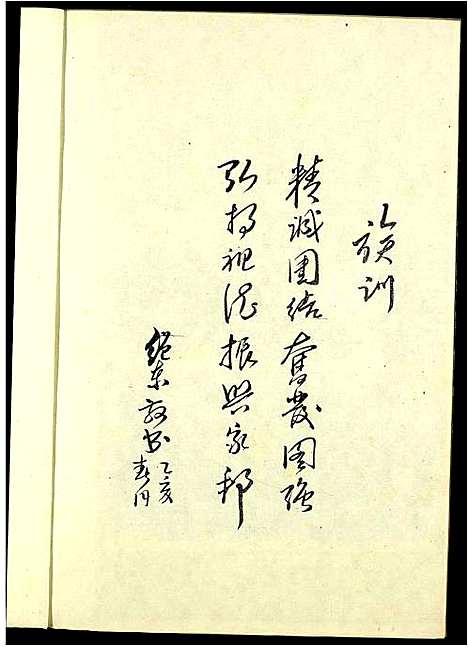 族训
精诚团结奮发图强
弘扬祖德振兴家邦
继东敬书
乙亥
春月